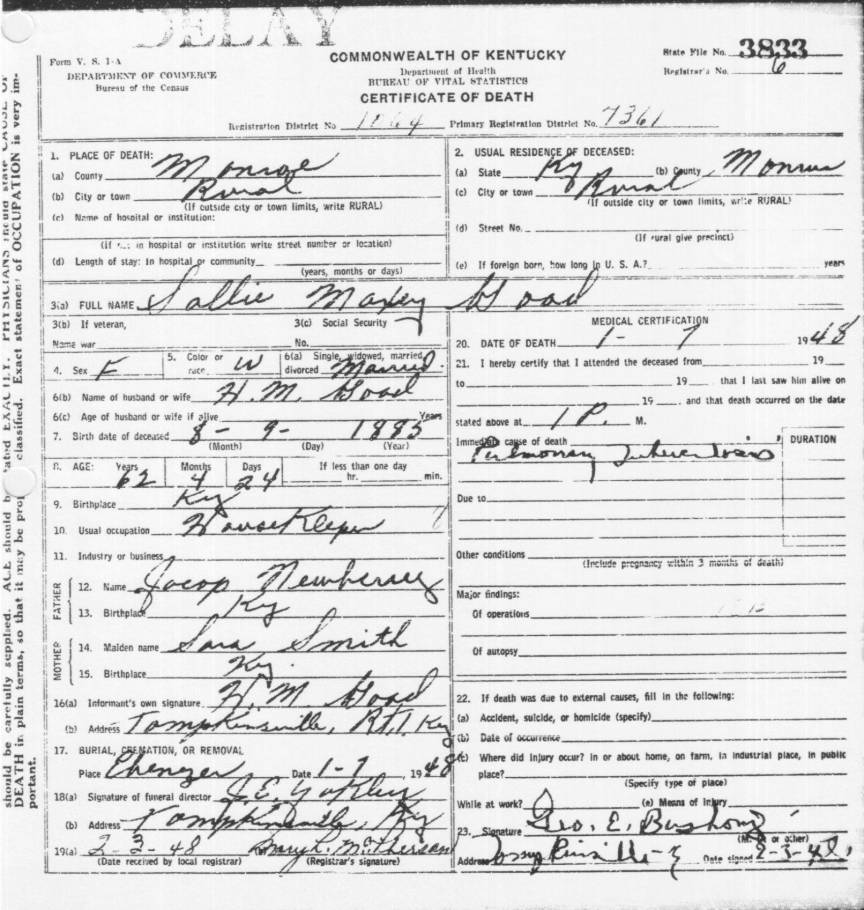 DELAY
Form V. S. 1-A
DEPARTMENT OF COMMERCE
Bureau of the Census
COMMONWEALTH OF KENTUCKY
Department of Health
BUREAU OF VITAL STATISTICS
CERTIFICATE OF DEATH
State File No. 3833
Registrar's No. 6
Registration District No 1064 Primary Registration District No. 7361
1. PLACE OF DEATH:
(a) County Monroe
(b) City or town Rural
(If outside city or town limits, write RURAL)
(c) Name of hospital or institution:
(If not in hospital or institution write street number or location)
(d) Length of stay: In hospital or community
(years, months or days)
2. USUAL RESIDENCE OF DECEASED:
(a) State Ky (b) County Monroe
(c) City or town Rural
(If outside city or town limits, write RURAL)
(d) Street No.
(If rural give precinct)
(e) If foreign born, how long in U. S. A.? years
3(a) FULL NAME Sallie Maxey Good
3(b) If veteran,
Name war
3(c) Social Security
No.
4. Sex F 5. Color or race W 6(a) Single, widowed, married, divorced Married
6(b) Name of husband or wife H. M. Good
6(c) Age of husband or wife if alive Years
7. Birth date of deceased 8 - 9 - 1885
(Month) (Day) (Year)
8. AGE: Years Months Days If less than one day
62 4 24 hr. min.
9. Birthplace Ky
10. Usual occupation HouseKeeper
11. Industry or business
FATHER
12. Name Jacop Newberry
13. Birthplace Ky
MOTHER
14. Maiden name Sara Smith
15. Birthplace Ky.
16(a) Informant's own signature H. M Good
(b) Address Tompkinsville, Rt. 1 Ky
17. BURIAL, CREMATION, OR REMOVAL
Place Ebenezer Date 1-7 1948
18(a) Signature of funeral director J. E. Yokley
(b) Address Tompkinsville, Ky
19(a) 2-3-48 Mary L. McPherson
(Date received by local registrar) (Registrar's signature)
MEDICAL CERTIFICATION
20. DATE OF DEATH 1- 7 1948
21. I hereby certify that I attended the deceased from 19
to 19 that I last saw him alive on
19 and that death occurred on the date
stated above at 1 P. M.
Immediate cause of death
Pulmonary Tuberculosis
DURATION
Due to
Other conditions
(Include pregnancy within 3 months of death)
Major findings:
Of operations
Of autopsy
22. If death was due to external causes, fill in the following:
(a) Accident, suicide, or homicide (specify)
(b) Date of occurrence
(c) Where did injury occur? in or about home, on farm, in industrial place, in public
place?
(Specify type of place)
While at work? (e) Means of Injury
23. Signature Geo. E. Bushong
(M. D. or other)
Address Tompkinsville Date signed 2-3-48
should be carefully supplied. AGE should be stated EXACTLY. PHYSICIANS should state CAUSE OF
DEATH in plain terms, so that it may be properly classified. Exact statement of OCCUPATION is very im-
portant.